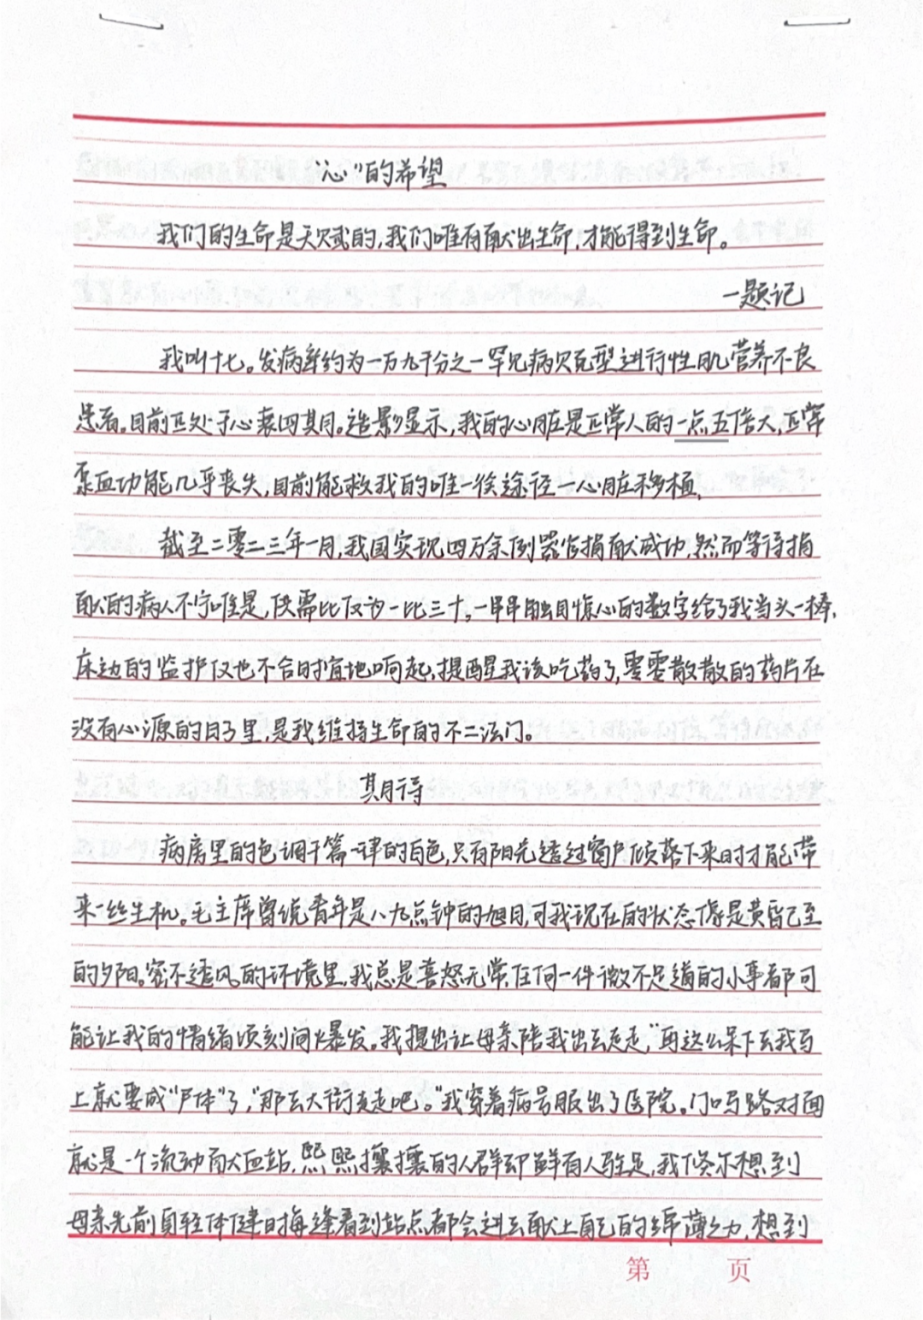 “心”的希望
我们的生命是天赋的，我们唯有献出生命，才能得到生命。
一题记
我叫十七。发病率约为一万九千分之一罕见病贝克型进行性肌营养不良
患者。目前正处于心衰四期。造影显示，我的心脏是正常人的一点五倍大，正常
泵血功能几乎丧失，目前能救我的唯一候途径一心脏移植。
截至二零二三年一月，我国实现四万余例器官捐献成功，然而等待捐
献的病人不宁唯是，供需比仅为一比三十，一串串触目惊心的数字给了我当头一棒，
床边的监护仪也不合时宜地响起，提醒我该吃药了，零零散散的药片在
没有心源的日子里，是我维持生命的不二法门。
期待
病房里的色调千篇一律的白色，只有阳光透过窗户倾落下来时才能带
来一丝生机。毛主席曾说青年是八九点钟的旭日，可我现在的状态像是黄昏已至
的夕阳。密不透风的环境里，我总是喜怒无常，任何一件微不足道的小事都可
能让我的情绪顷刻间爆发。我提出让母亲陪我出去走走，“再这么呆下去我马
上就要成“尸体”了，“那去大街走走吧。”我穿着病号服出了医院。门口马路对面
就是一个流动献血站，熙熙攘攘的人群却鲜有人驻足，我倏尔想到
母亲先前身轻体健时每逢看到站点都会进去献上自己的绵薄之力，想到
第 页